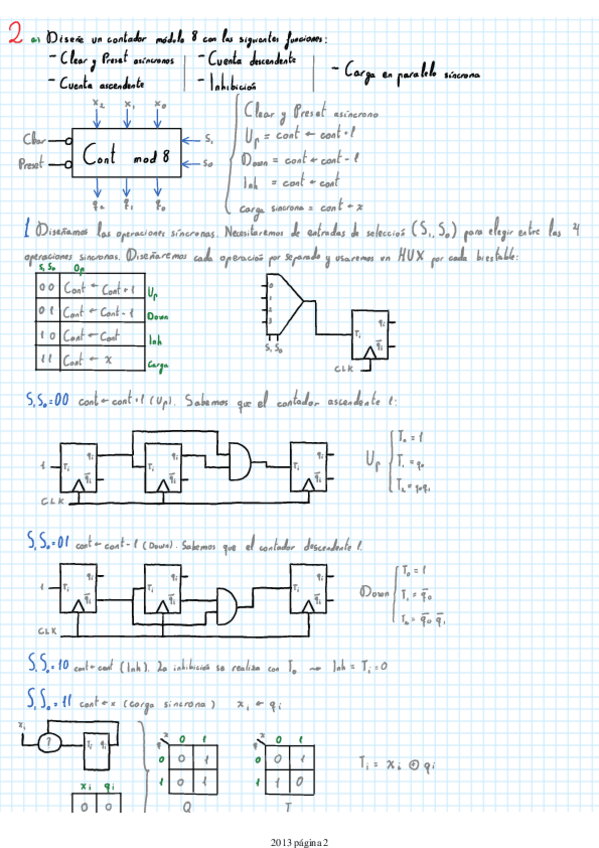 2 a) Diseñe un contador módulo 8 con las siguientes funciones:
- Clear y Preset asíncronos
- Cuenta ascendente
- Cuenta descendente
- Inhibición
- Carga en paralelo síncrona
x₂ x₁ x₀
Clear
Preset
Cont mod 8
S₁
S₀
q₂ q₁ q₀
Clear y Preset asíncrono
Up = cont ← cont + 1
Down = cont ← cont - 1
Inh = cont ← cont
carga síncrona = cont ← x
1 Diseñamos las operaciones síncronas. Necesitaremos de entradas de selección (S₁, S₀) para elegir entre las 4
operaciones síncronas. Diseñaremos cada operación por separado y usaremos un MUX por cada biestable:
S₁ S₀ Op
00 Cont ← Cont + 1 Up
01 Cont ← Cont - 1 Down
10 Cont ← Cont Inh
11 Cont ← x Carga
0
1
2
3
S₁ S₀
Tᵢ qᵢ q̅ᵢ
CLK
S₁S₀=00 cont ← cont + 1 (Up). Sabemos que el contador ascendente 1:
1 Tᵢ qᵢ q̅ᵢ Tᵢ qᵢ q̅ᵢ Tᵢ qᵢ q̅ᵢ
CLK
Up
T₀ = 1
T₁ = q₀
T₂ = q₀q₁
S₁S₀=01 cont ← cont - 1 (Down). Sabemos que el contador descendente 1.
1 Tᵢ qᵢ q̅ᵢ Tᵢ qᵢ q̅ᵢ Tᵢ qᵢ q̅ᵢ
CLK
Down
T₀ = 1
T₁ = q̅₀
T₂ = q̅₀ q̅₁
S₁S₀=10 cont ← cont (Inh). La inhibición se realiza con T₀ → Inh = Tᵢ = 0
S₁S₀=11 cont ← x (carga síncrona) xᵢ ← qᵢ
xᵢ
?
Tᵢ qᵢ
xᵢ qᵢ
0 0
q x 0 1
0 0 1
1 0 1
Q
q x 0 1
0 0 1
1 1 0
T
Tᵢ = xᵢ ⊕ qᵢ
2013 página 2